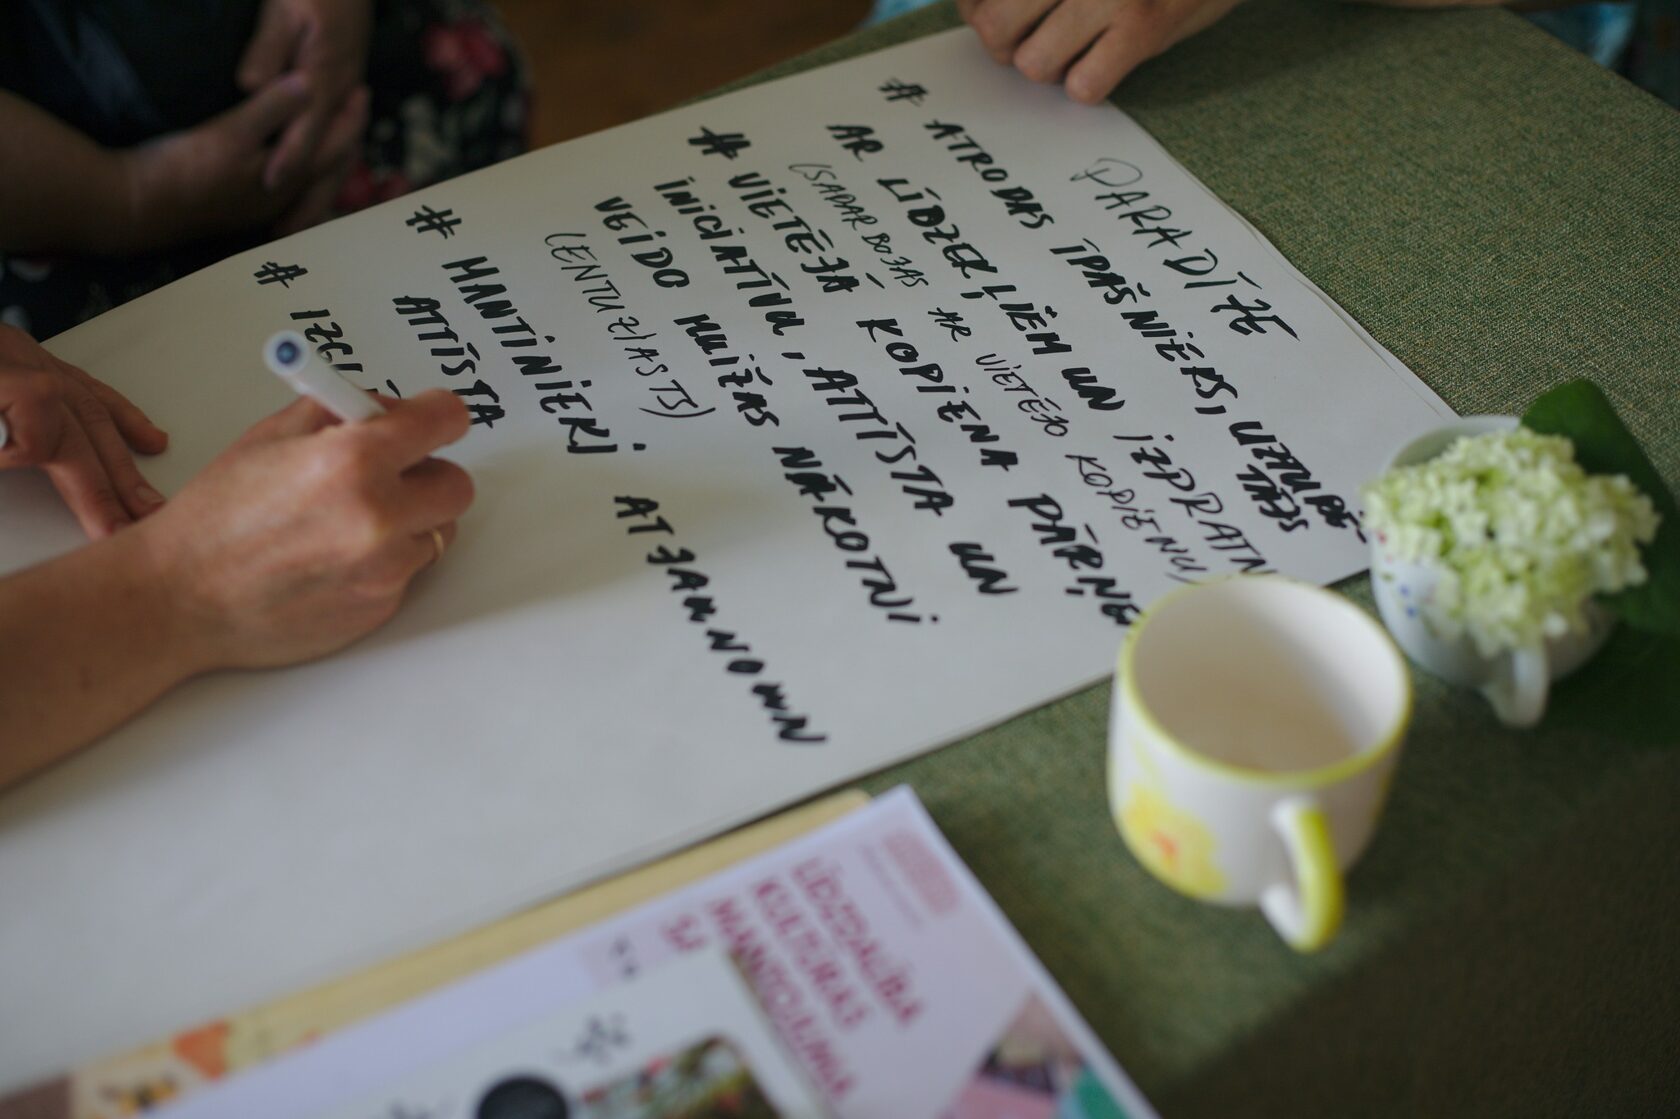 PARADĪZE
# ATRODAS ĪPAŠNIEKS, UZTUPĒ
TĀJS
AR LĪDZEKĻIEM UN IZPRATN
(SADARBOJAS AR VIETĒJO KOPIENU)
# VIETĒJĀ KOPIENA PĀRŅE
INICIATĪVU, ATTĪSTA UN
VEIDO MUIŽAS NĀKOTNI
(ENTUZIASTS)
# MANTINIEKI ATJAUNO UN
ATTĪSTA
# IZGLĪ
LĪDZDALĪBA
KULTŪRAS
MANTOJUMA